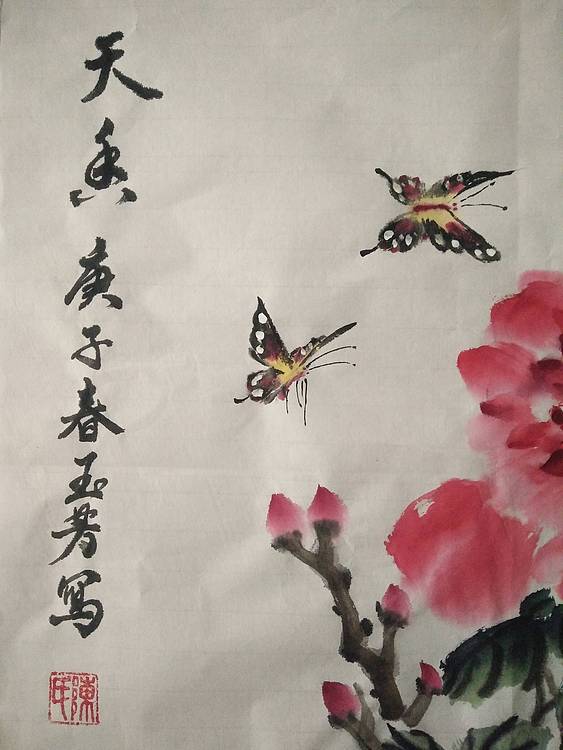 天香庚子春玉芳寫
陳氏